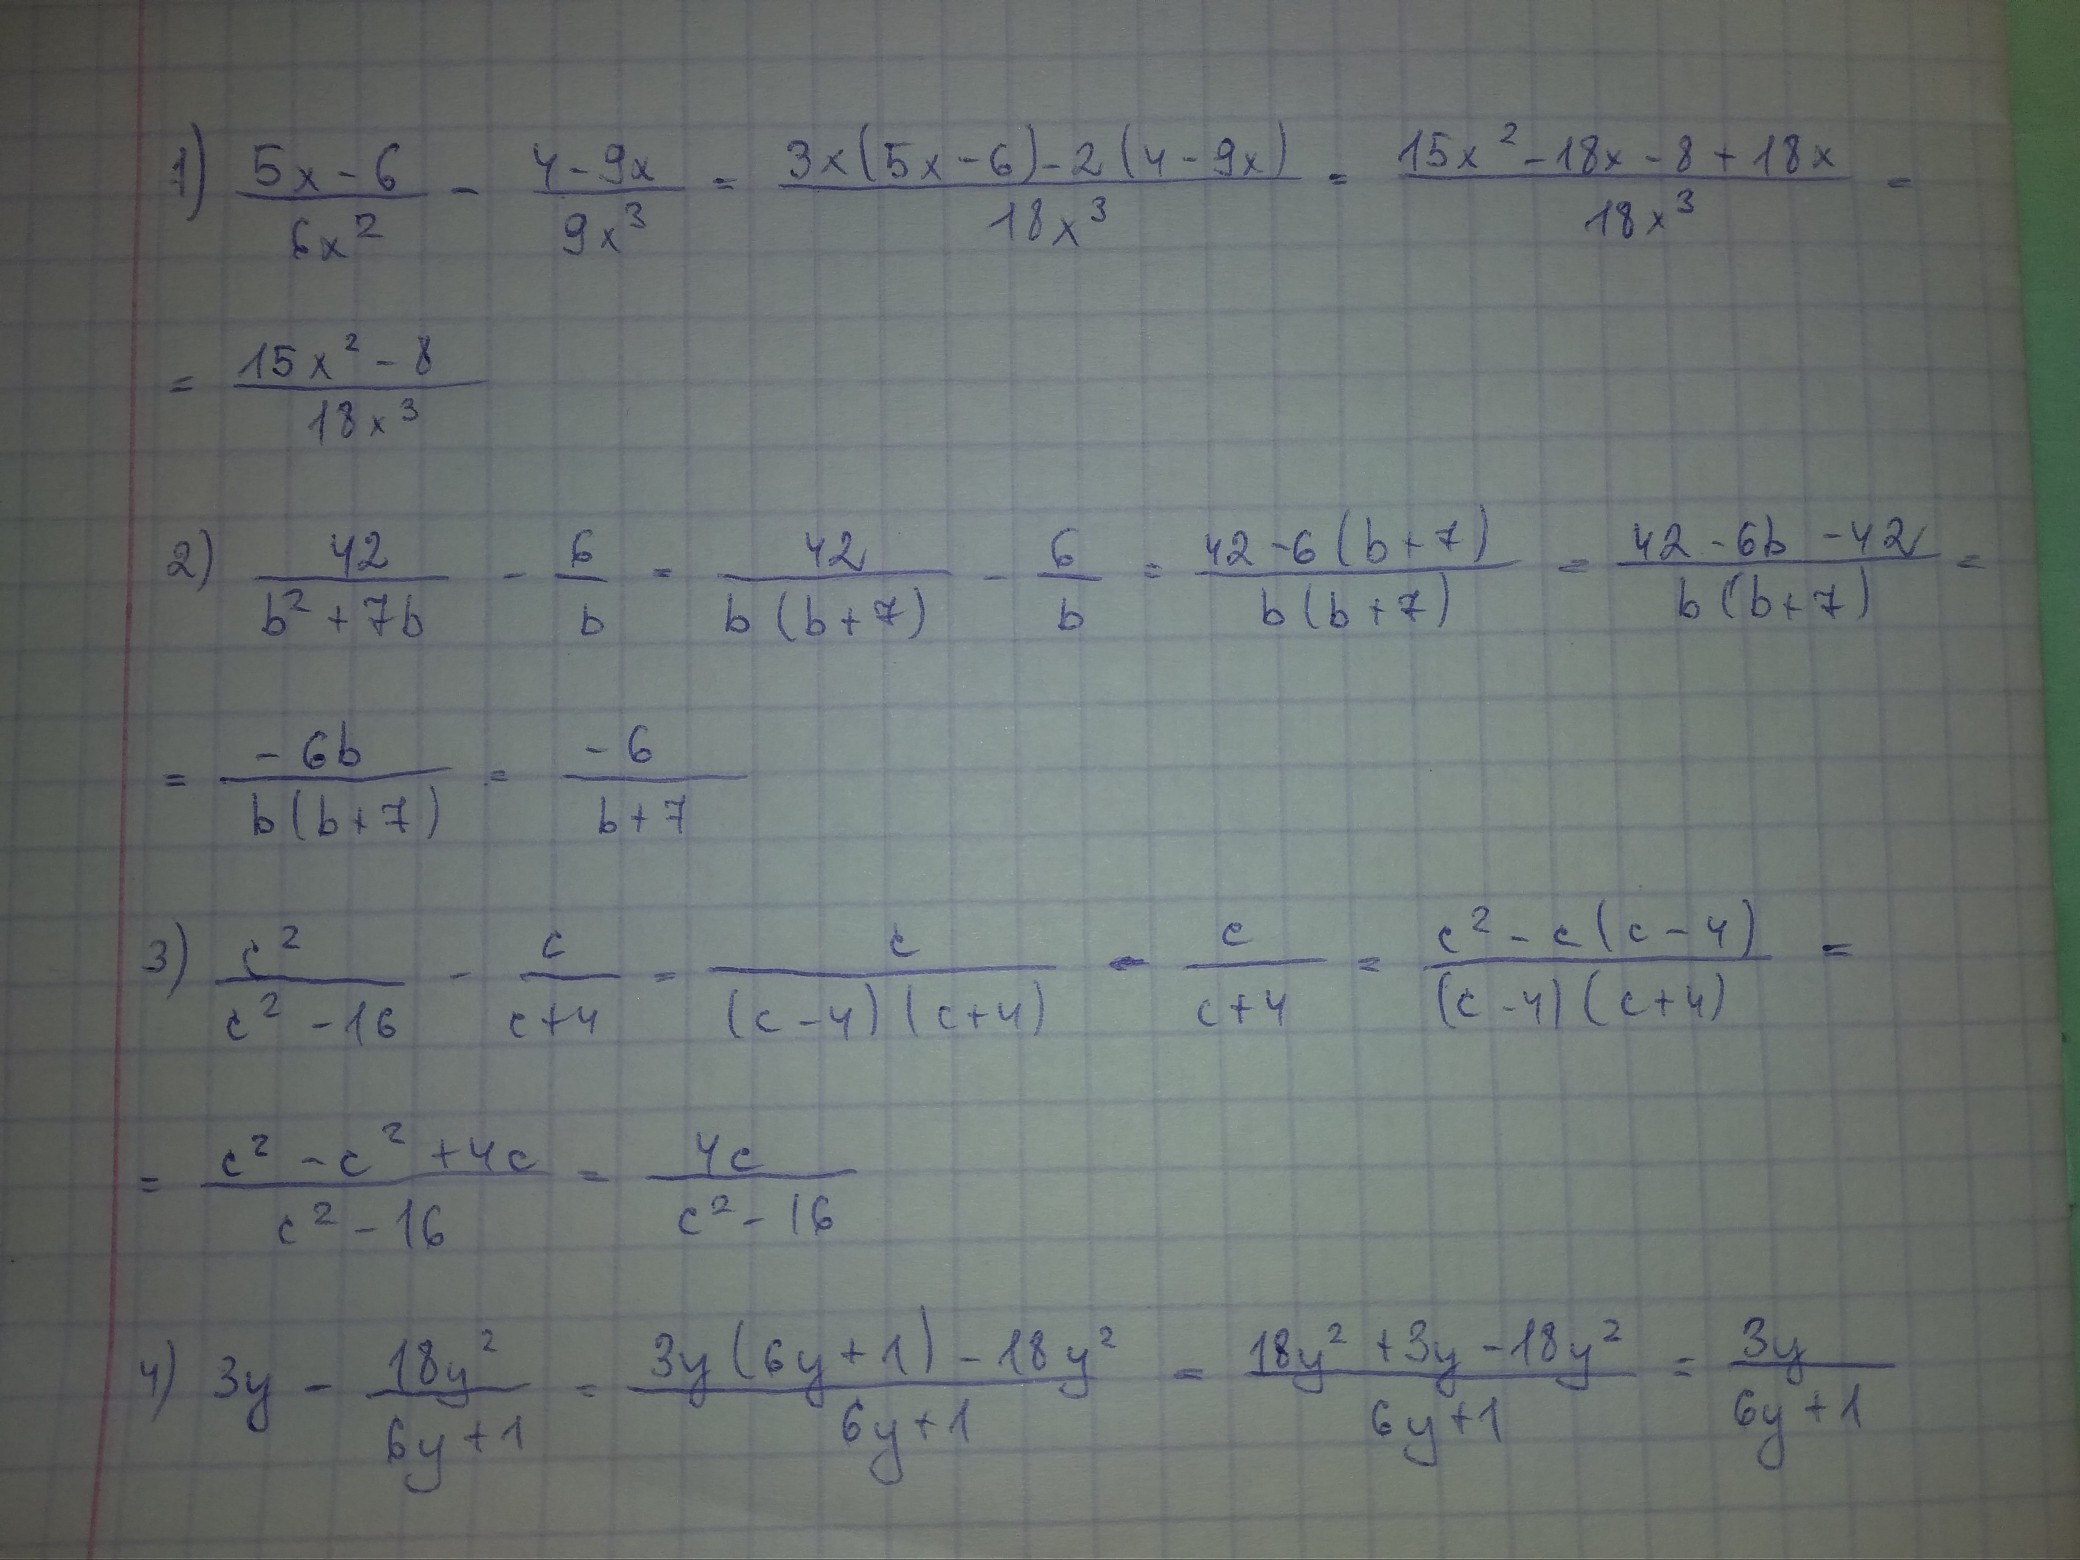 1) (5x-6)/(6x²) - (4-9x)/(9x³) = (3x(5x-6)-2(4-9x))/(18x³) = (15x²-18x-8+18x)/(18x³) =
= (15x²-8)/(18x³)
2) 42/(b²+7b) - 6/b = 42/(b(b+7)) - 6/b = (42-6(b+7))/(b(b+7)) = (42-6b-42)/(b(b+7)) =
= (-6b)/(b(b+7)) = (-6)/(b+7)
3) c²/(c²-16) - c/(c+4) = c/((c-4)(c+4)) - c/(c+4) = (c²-c(c-4))/((c-4)(c+4)) =
= (c²-c²+4c)/(c²-16) = 4c/(c²-16)
4) 3y - 18y²/(6y+1) = (3y(6y+1)-18y²)/(6y+1) = (18y²+3y-18y²)/(6y+1) = 3y/(6y+1)